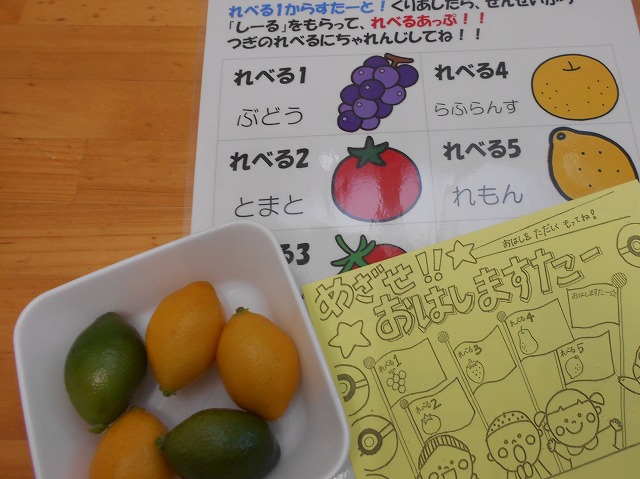 れべる1からすたーと！くりあしたら、せんせいから
「しーる」をもらって、れべるあっぷ！！
つぎのれべるにちゃれんじしてね！！
れべる1
ぶどう
れべる4
らふらんす
れべる2
とまと
れべる5
れもん
3
おはしを ただしく もってね！
めざせ!!
おはしますたー
おはしますたー
れべる1
れべる2
れべる3
れべる4
れべる5